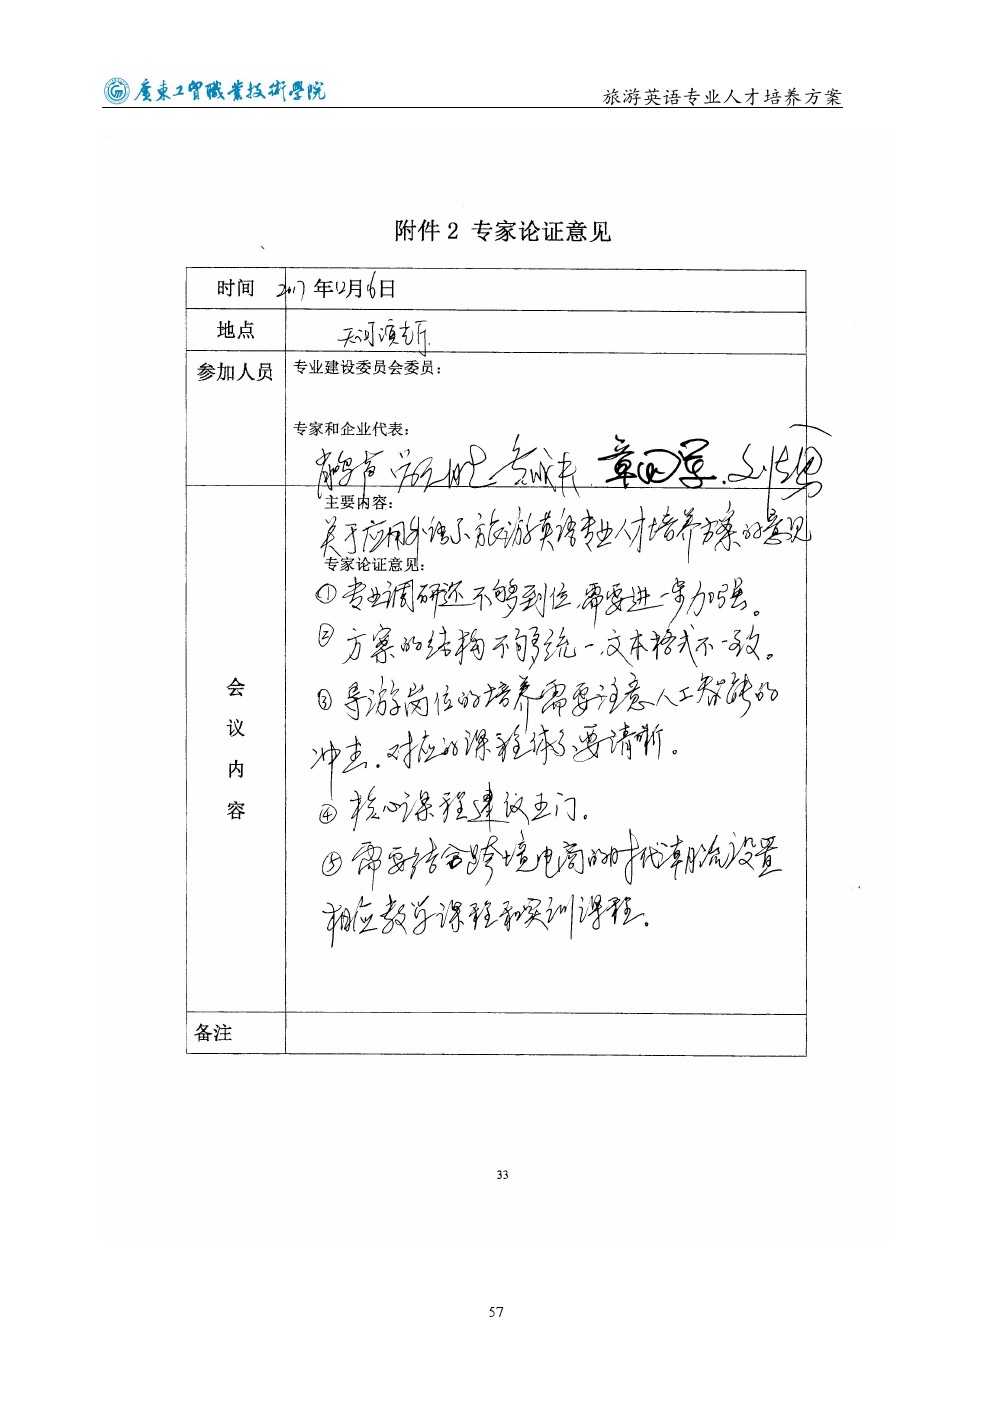 廣東工貿職業技術學院
旅游英语专业人才培养方案
附件 2 专家论证意见
时间 2017 年12月6日
地点 天河演艺厅
参加人员 专业建设委员会委员：
专家和企业代表：
主要内容：
关于应用外语系旅游英语专业人才培养方案的意见
专家论证意见：
① 专业调研还不够到位，需要进一步加强。
② 方案的结构不够统一，文本格式不一致。
③ 导游岗位的培养需要注意人工智能的
冲击，对应的课程体系要清晰。
④ 核心课程建议五门。
⑤ 需要结合跨境电商的时代潮流设置
相应教学课程和实训课程。
会
议
内
容
备注
33
57